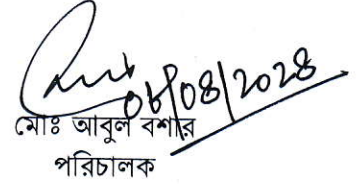 06/08/2028
মোঃ আবুল বশার
পরিচালক